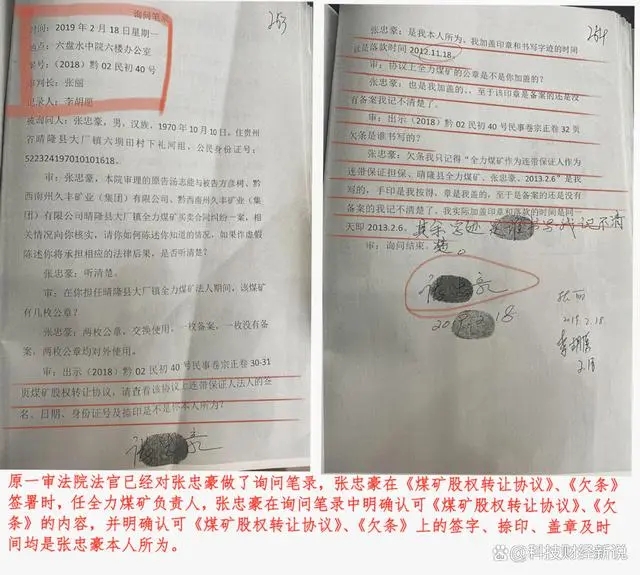 询问笔录
253
时间：2019 年 2 月 18 日星期一
地点：六盘水中院六楼办公室
案号：（2018）黔 02 民初 40 号
审判长：张丽
记录人：李胡愿
被询问人：张忠豪，男，汉族，1970 年 10 月 10 日，住贵州
省晴隆县大厂镇六坝田村下礼河组，公民身份证号：
522324197010101618。
审：张忠豪，本院审理的原告汤志能与被告方彦树、黔
西南州久丰矿业（集团）有限公司、黔西南州久丰矿业（集
团）有限公司晴隆县大厂镇全力煤矿买卖合同纠纷一案，相
关情况向你核实，请你如何陈述你知道的情况，如果作虚假
陈述你将承担相应的法律后果，是否听清楚？
张忠豪：听清楚。
审：在你担任晴隆县大厂镇全力煤矿法人期间，该煤矿
有几枚公章？
张忠豪：两枚公章，交换使用，一枚备案，一枚没有备
案，两枚公章均对外使用。
审：出示（2018）黔 02 民初 40 号民事卷宗正卷 30-31
页煤矿股权转让协议，请查看该协议上连带保证人法人的签
名、日期、身份证号及捺印是不是你本人所为？
张忠豪
254
张忠豪：是我本人所为，我加盖印章和书写字迹的时间
就是落款时间 2012.11.18。
审：协议上全力煤矿的公章是不是你加盖的？
张忠豪：也是我加盖的、至于该印章是备案的还是没
有备案我记不清楚了。
审：出示（2018）黔 02 民初 40 号民事卷宗正卷 32 页
欠条是谁书写的？
张忠豪：欠条我只记得“全力煤矿作为连带保证人作为
连带保证担保、晴隆县全力煤矿、张忠豪、2013.2.6”是我
写的，手印是我按得，章是我盖的，至于是备案的还是没有
备案的我记不清楚了。我实际加盖印章和落款的时间是同一
天即 2013.2.6。其余字迹是谁书写我记不清
楚。
审：询问结束。
张忠豪
张丽
2019.2.18
原一审法院法官已经对张忠豪做了询问笔录，张忠豪在《煤矿股权转让协议》、《欠条》
签署时，任全力煤矿负责人，张忠豪在询问笔录中明确认可《煤矿股权转让协议》、《欠
条》的内容，并明确认可《煤矿股权转让协议》、《欠条》上的签字、捺印、盖章及时
间均是张忠豪本人所为。
@科技财经新说